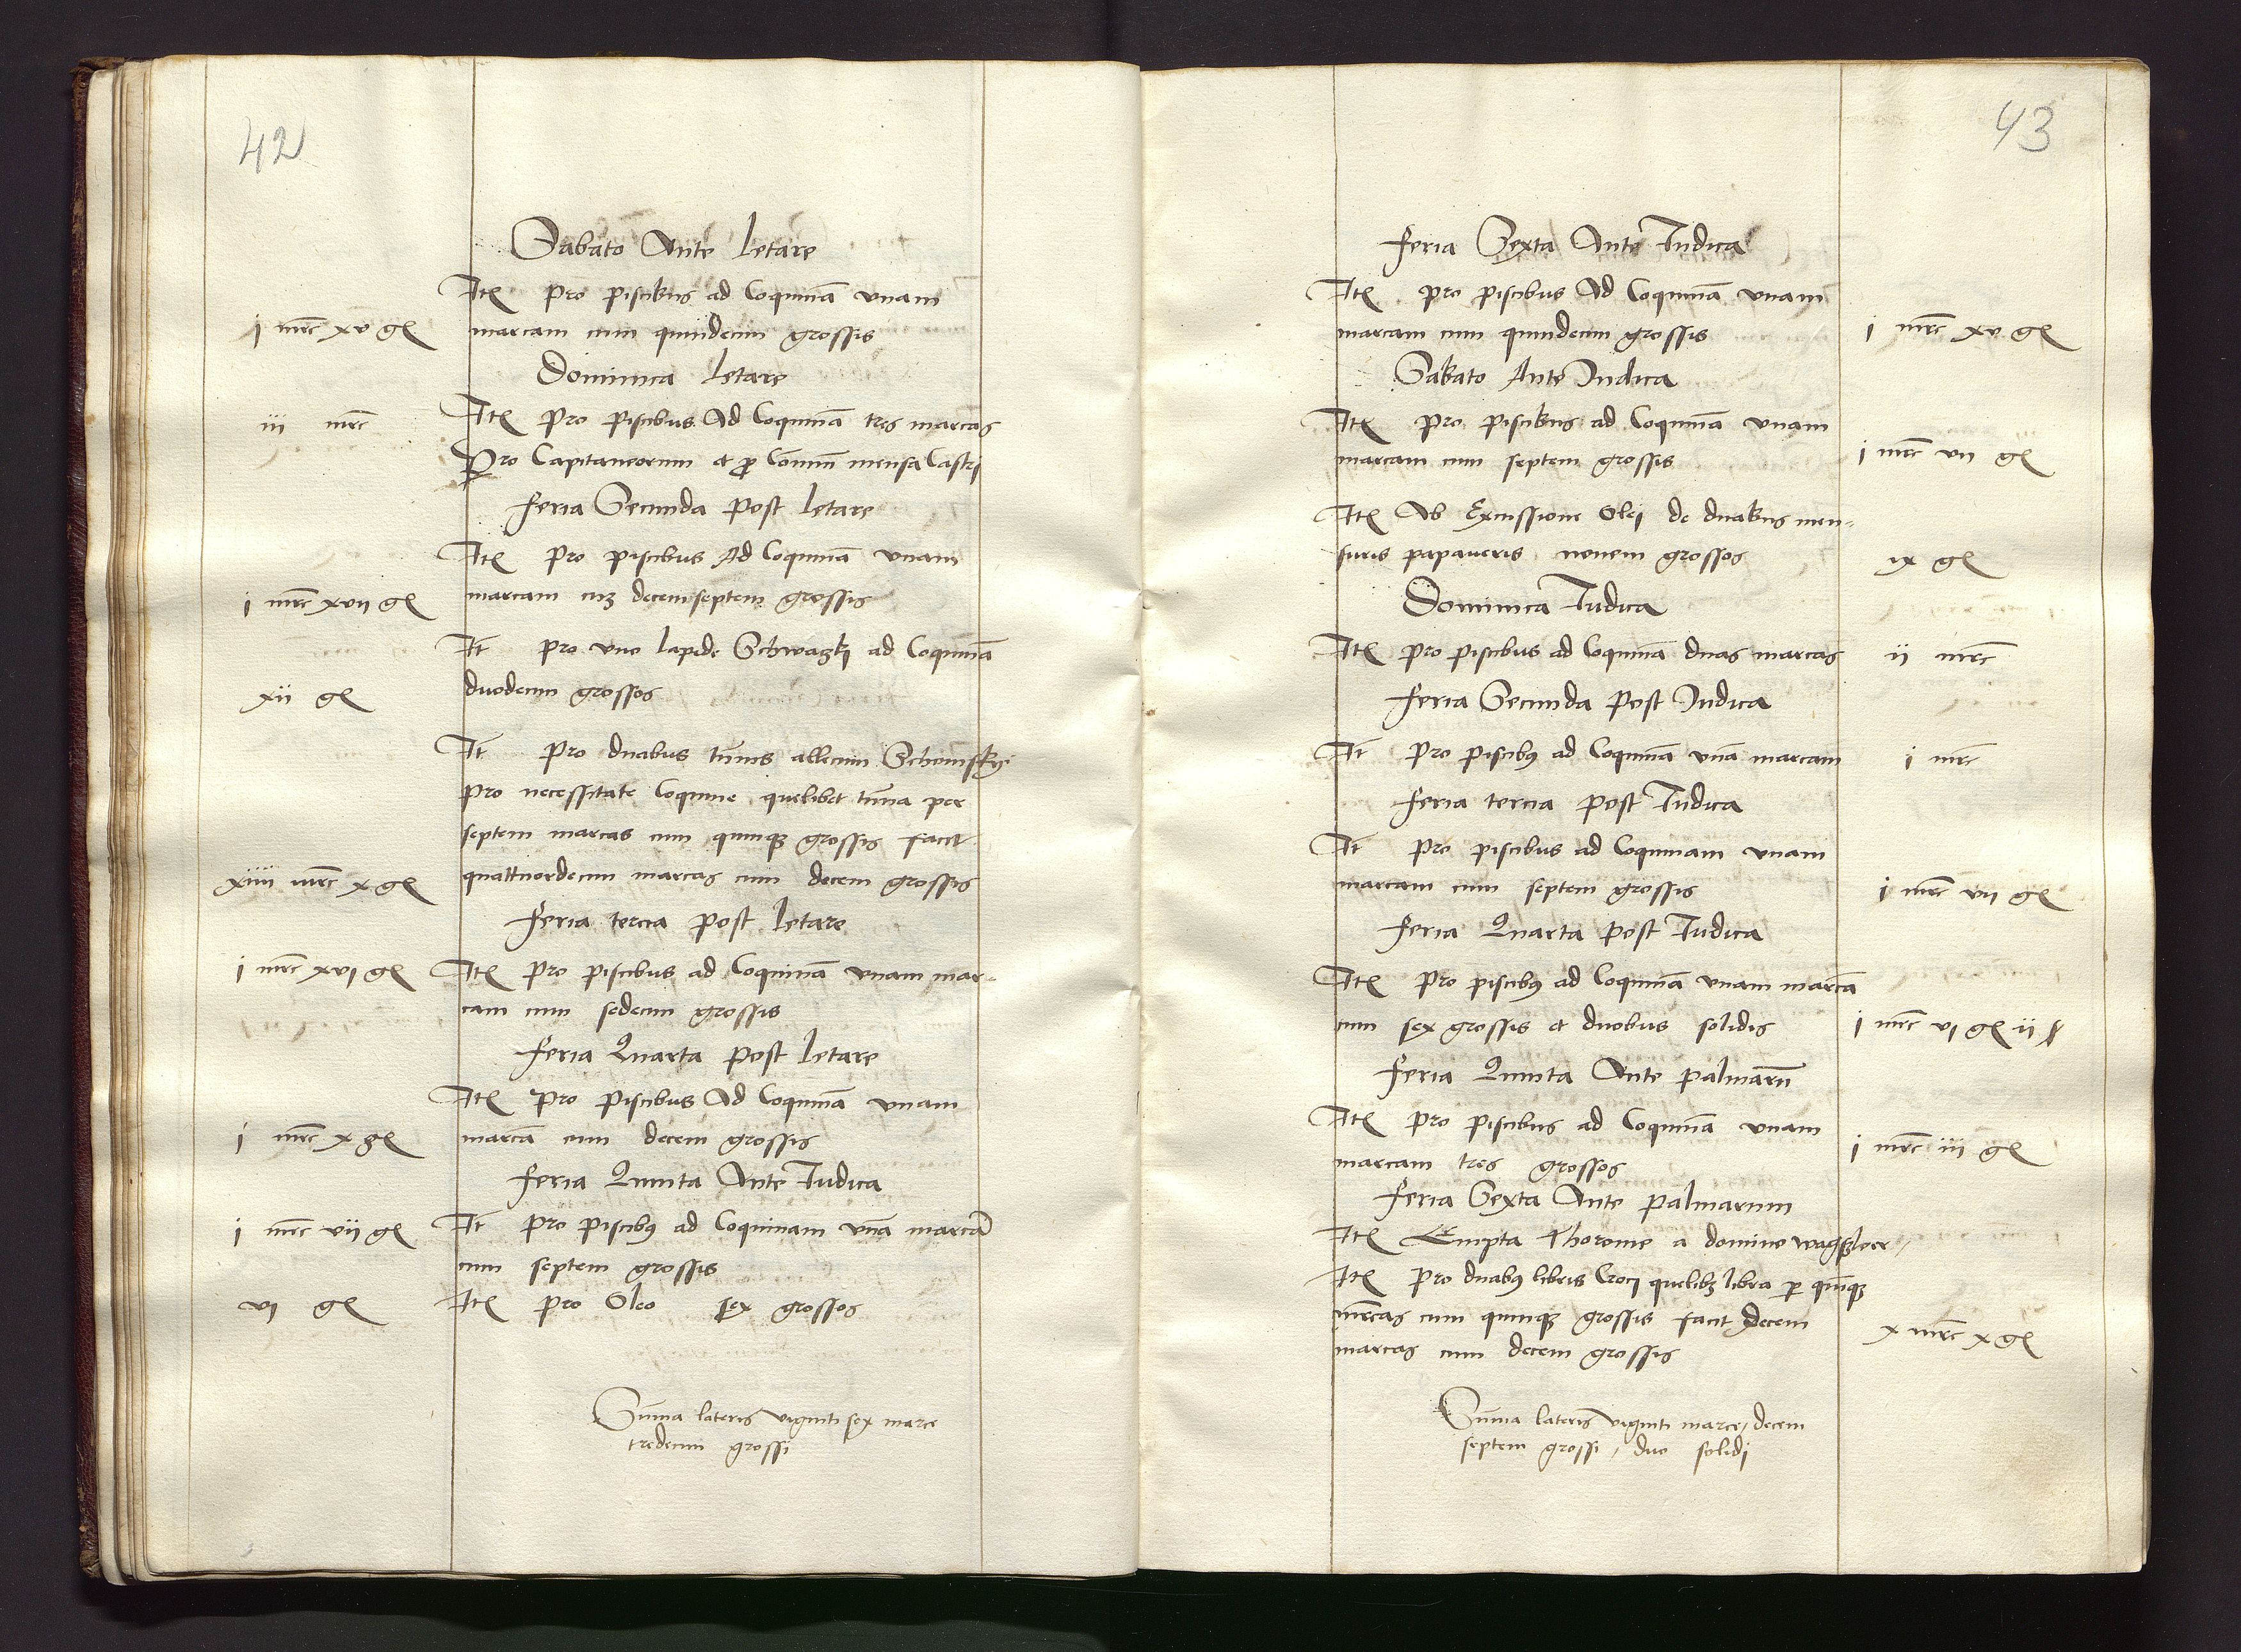 42
Sabato Ante Letare
Ite[m] pro piscibus ad Coquinā vnam
i mrc xv gꝭ marcam cum quindecim grossis
Dominica Letare
iii mrc Itē pro piscibus Ad Coquinā tres marcas
Pro Capitaneorum et ꝓ Cōmuni mensa Castri
feria Secunda post letare
Itē pro piscibus Ad Coquinā vnam
i mrc xvii gꝭ marcam cuʒ decemseptem grossis
It pro vno lapide Schwaʒki ad Coquinā
xii gꝭ duodecim grossos
It pro duabus tūnis allecum Schomsky
pro necessitate Coquine quelibet tūna per
septem marcas cum quinqꝫ grossis facit
xiiii mrc x gꝭ quattuordecim marcas cum decem grossis
feria tercia post letare
i mrc xvi gꝭ Itē pro piscibus ad Coquinā vnam mar=
cam cum sedecim grossis
feria Quarta post letare
Itē pro piscibus Ad Coquinā vnam
i mrc x gꝭ marcā cum decem grossis
feria Quinta Ante Iudica
i mrc vii gꝭ It pro piscibꝰ ad Coquinam vnā marcā
cum septem grossis
vi gꝭ Itē pro Oleo sex grossos
Sūma lateris viginti sex marce
tredecim grossi
43
feria Sexta Ante Iudica
Itē pro piscibus Ad Coquinā vnam
marcam cum quindecim grossis i mrc xv gꝭ
Sabato Ante Iudica
Itē pro piscibus ad Coquinā vnam
marcam cum septem grossis i mrc vii gꝭ
Itē Ab Excussione Olei de duabus men=
suris papaueris nouem grossos ix gꝭ
Dominica Iudica
Itē pro piscibus ad Coquinā duas marcas ii mrc
feria Secunda post Iudica
It pro piscibꝰ ad Coquinā vnā marcam i mrc
feria tercia post Iudica
It pro piscibus ad Coquinam vnam
marcam cum septem grossis i mrc vii gꝭ
feria Quarta post Iudica
Itē pro piscibꝰ ad Coquinā vnam marcā
cum sex grossis et duobus solidis i mrc vi gꝭ ii ß
feria Quinta Ante palmarū
Itē pro piscibus ad Coquinā vnam
marcam tres grossos i mrc iii gꝭ
feria Sexta Ante palmarum
Itē Empta Thoronie a domino
Itē pro duabꝰ libris Croci quelibꝫ libra ꝑ quīqꝫ
mrcas cum quinqꝫ grossis facit decem
marcas cum decem grossis x mrc x gꝭ
Sūma lateris viginti marce / decem
septem grossi / duo solidi